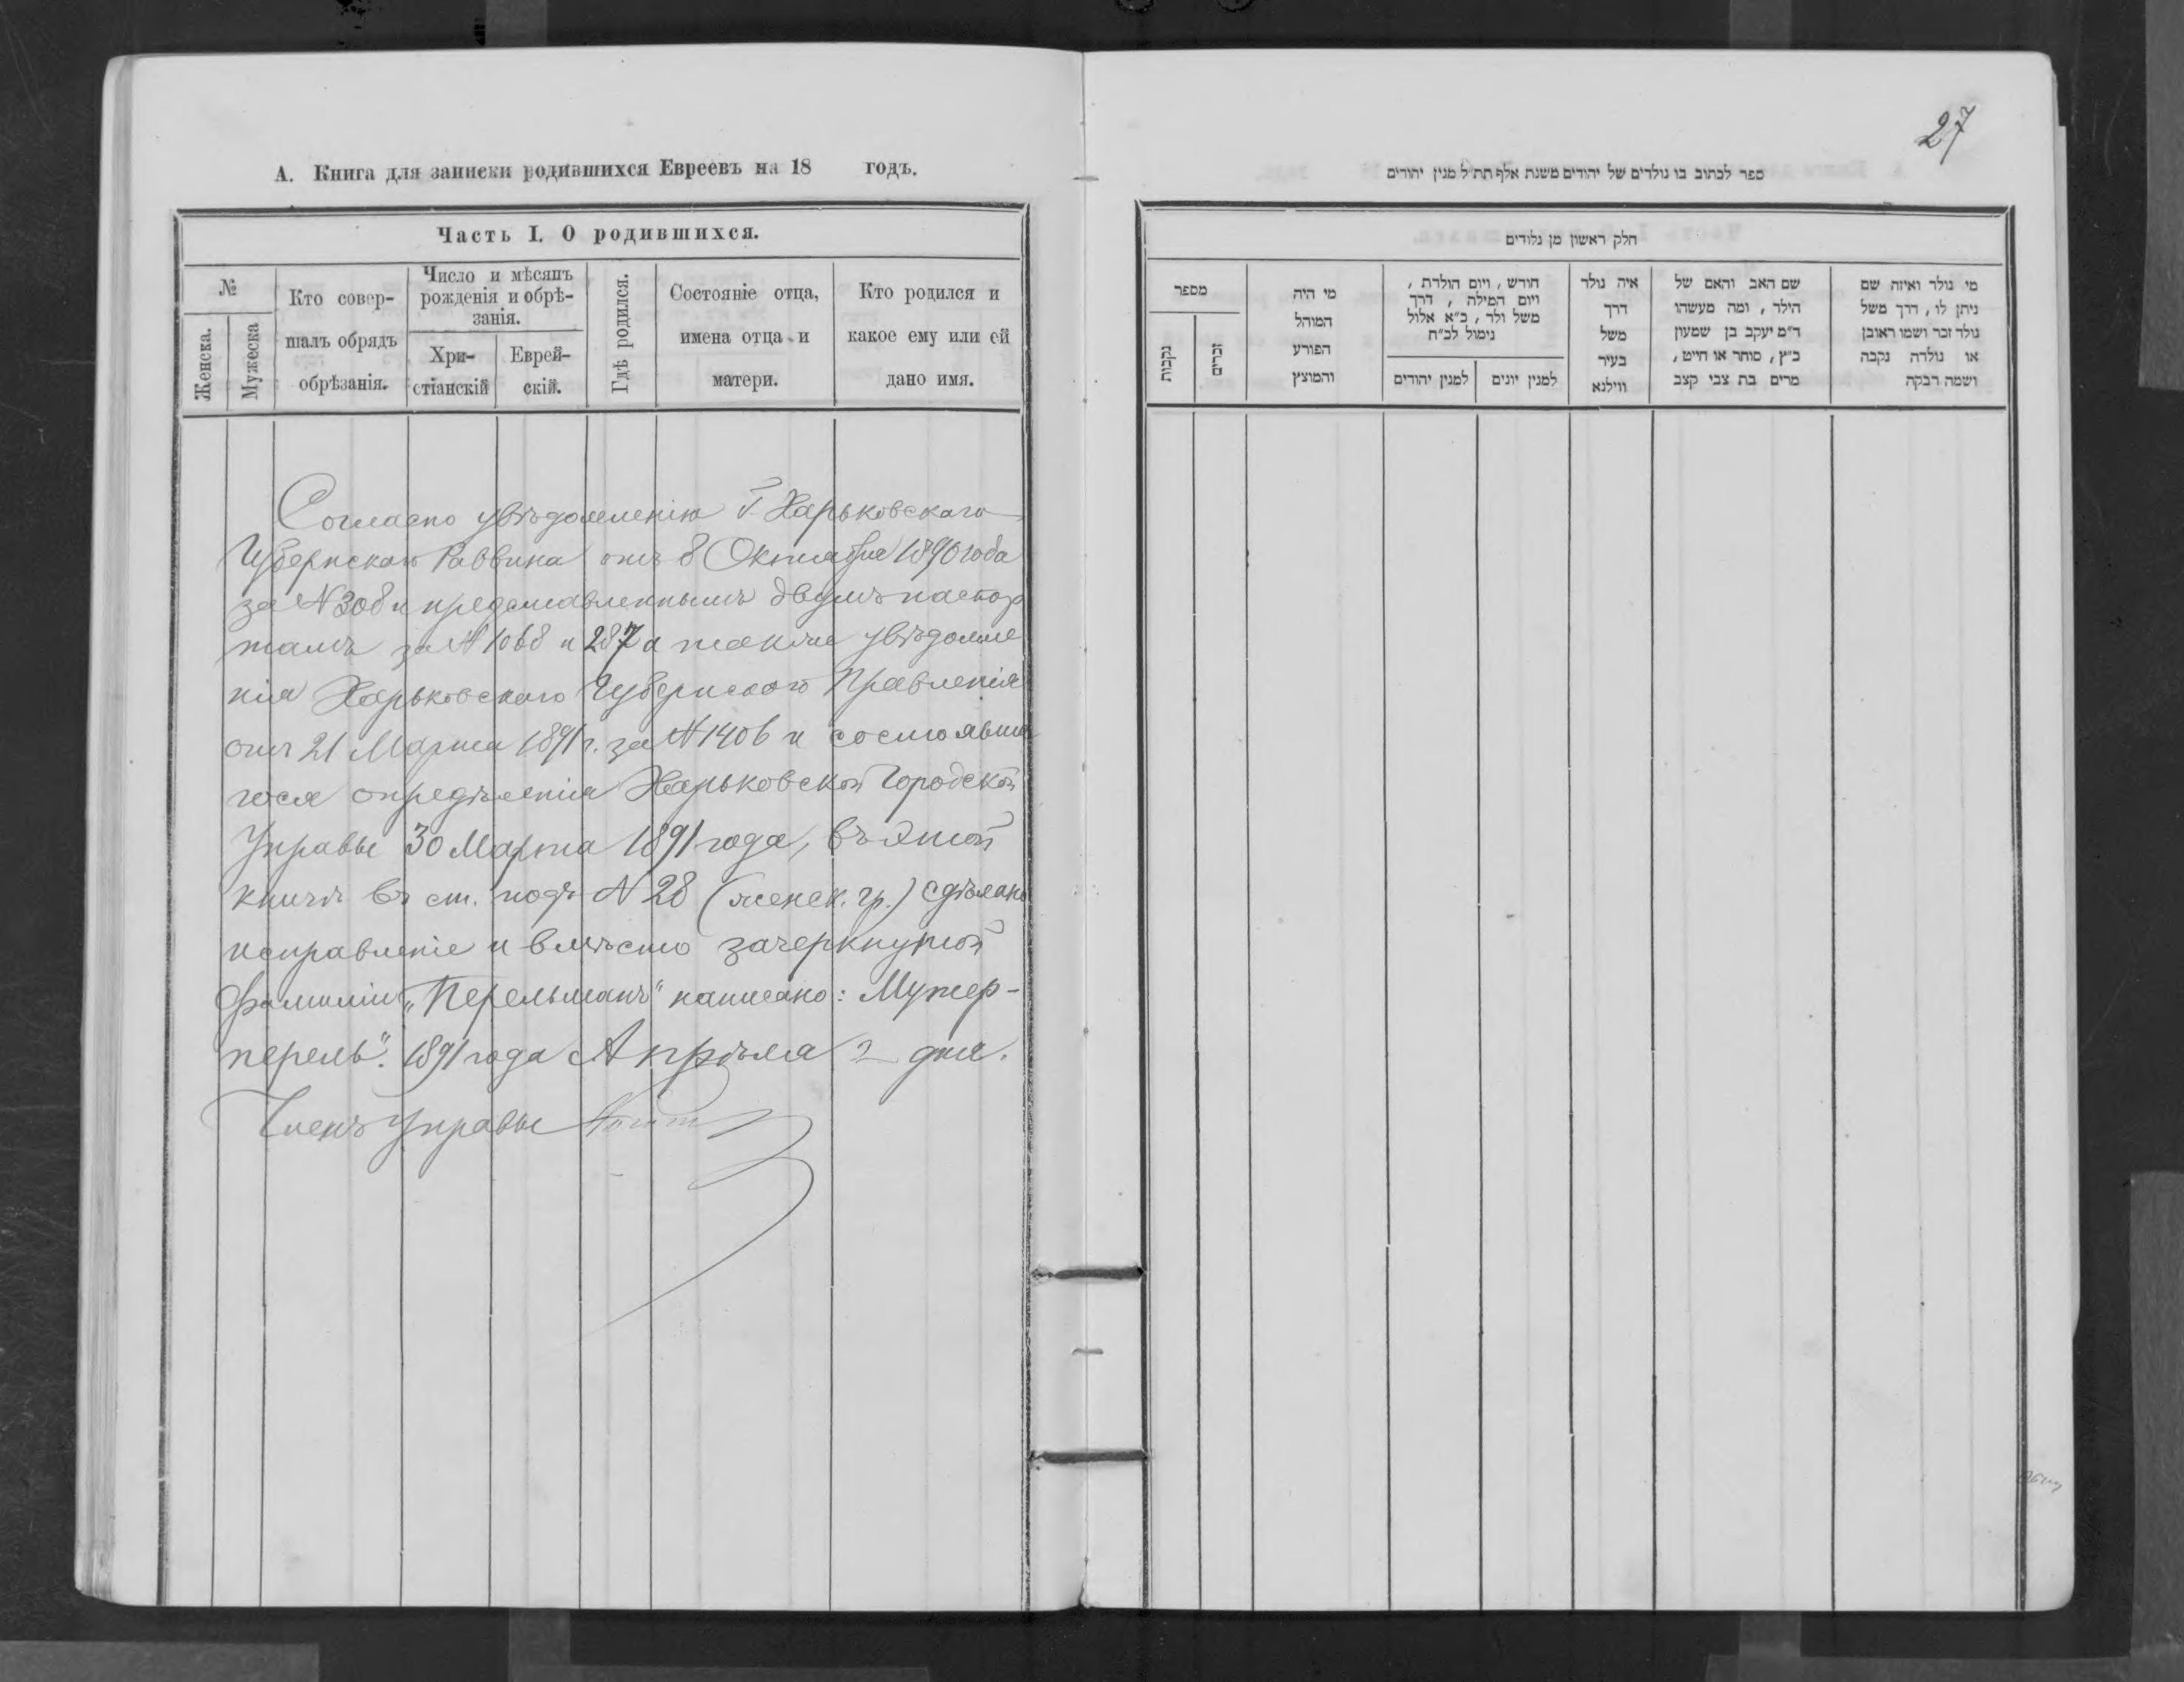 А. Книга для записки родившихся Евреевъ на 18 годъ.
Часть I. О родившихся.
№
Женска.
Мужеска
Кто совер-
шалъ обрядъ
обрѣзанія.
Число и мѣсяцъ
рожденія и обрѣ-
занія.
Хри-
стіанскій
Еврей-
скій.
Гдѣ родился.
Состояніе отца,
имена отца и
матери.
Кто родился и
какое ему или ей
дано имя.
Согласно увѣдомленію Г. Харьковскаго
Губернскаго Раввина отъ 8 Октября 1890 года
за № 308 и представленнымъ двумъ паспор
тамъ за № 1068 и 287 а также увѣдомле
нія Харьковскаго Губернскаго Правленія
отъ 21 Марта 1891 г. за № 1406 и состоявша
гося опредѣленія Харьковской Городской
Управы 30 Марта 1891 года, въ этой
книгѣ въ ст. подъ № 28 (женск. гр.) сдѣлано
исправленіе и вмѣсто зачеркнутой
фамиліи „Перельманъ" написано: Мутер-
перель". 1891 года Апрѣля 2 дня.
Членъ Управы
27
ספר לכתוב בו נולדים של יהודים משנת אלף תת״ל מנין יהודים
חלק ראשון מן נלודים
מספר
נקבות
זכרים
מי היה
המוהל
הפורע
והמוצץ
חודש, ויום הולדת,
ויום המילה, דרך
משל ולד, כ״א אלול
נימול לכ״ח
למנין יהודים
למנין יונים
איה נולד
דרך
משל
בעיר
ווילנא
שם האב והאם של
הילד, ומה מעשהו
ד״מ יעקב בן שמעון
כ״ץ, סוחר או חייט,
מרים בת צבי קצב
מי נולד ואיזה שם
ניתן לו, דרך משל
נולד זכר ושמו ראובן
או נולדה נקבה
ושמה רבקה